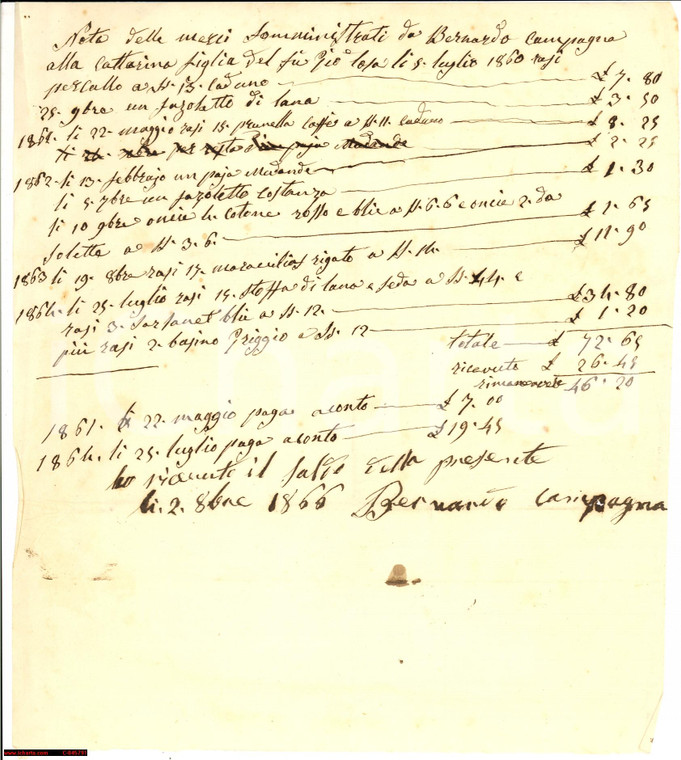 Nota delle merci Somministrati da Bernardo Campagna
alla Cattarina figlia del fu Gio: Cosa li 5 luglio 1860 rasi
percallo a H. 13. Caduno £ 7. 80
25. 9bre un fazoletto di lana £ 3. 50
1861. li 22. maggio rasi 15. prunella Caffè a H. 11. Caduno £ 8. 25
paja Mudande £ 2. 25
1862. li 13. febbrajo un paja Mudande £ 1. 30
li 5. 7bre un fazoletto Costanza
li 10 9bre oncie 4. Cotone rosso e blù a H. 6. 6 e oncie 2. da
Soletta a H. 3. 6. £ 1. 65
1863 li 19. 8bre rasi 17. maraviglias rigato a H. 14. £ 11. 90
1864. li 25. luglio rasi 15. stoffa di lana e Seda a H. 44. e
rasi 3. Sarsanet blù a H. 12. £ 34. 80
più rasi 2. basino Griggio a H. 12 £ 1. 20
totale £ 72. 65
ricevuto £ 26. 45
rimanente 46. 20
1861. li 22. maggio paga aconto £ 7. 00
1864. li 25. luglio paga aconto £ 19. 45
ho ricevuto il saldo della presente
li. 2. 8bre 1866 Bernardo Campagna
www.inharta.com C-845791